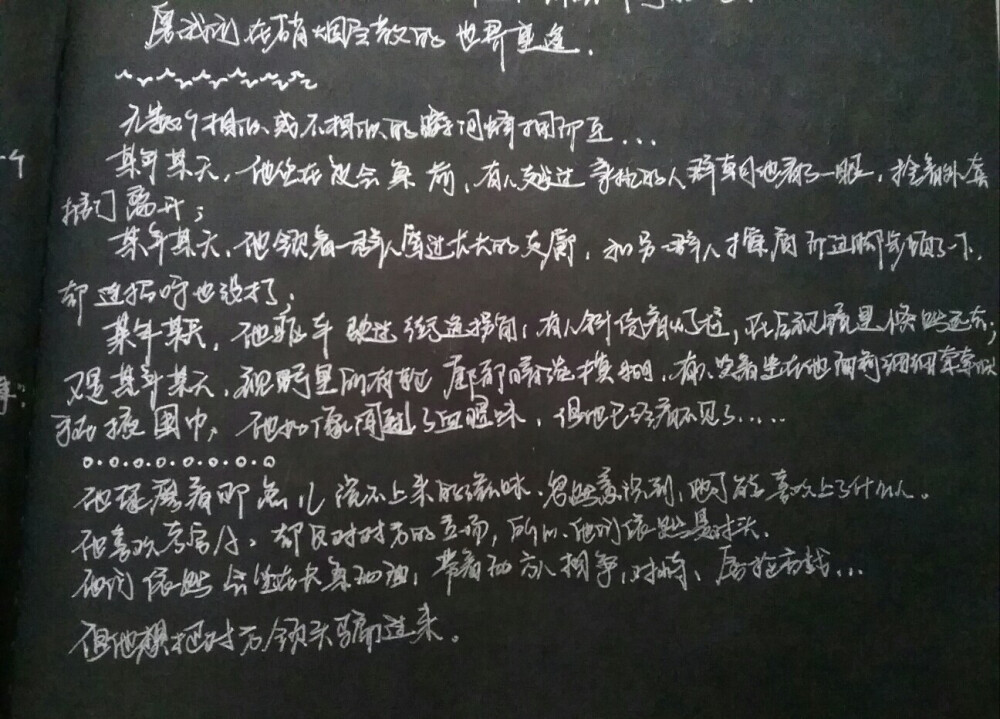 愿我们在硝烟尽散的世界重逢.
无数个相似或不相似的瞬间蜂拥而至...
某年某天,他坐在议会桌前,有人越过旁观的人群朝他看了一眼,拎着外套
推门离开;
某年某天,他领着一群人穿过长长的走廊,和另一群人擦肩而过脚步顿了一下,
却连招呼也没打;
某年某天,他驱车驶过街道拐角,有人斜倚着灯柱,在后视镜里倏然远去;
又是某年某天,视野里所有轮廓都暗淡模糊,有人坐着在他面前
他好像闻到了血腥味,但他已经看不见了......
他琢磨着那点儿说不上来的滋味,忽然意识到,他可能喜欢上了什么人。
他喜欢考官A,却反对对方的立场,所以他们依然是对头.
他们依然会坐在长桌两端,带着两方人相争,对峙,
但他想把对方领头骗过来。